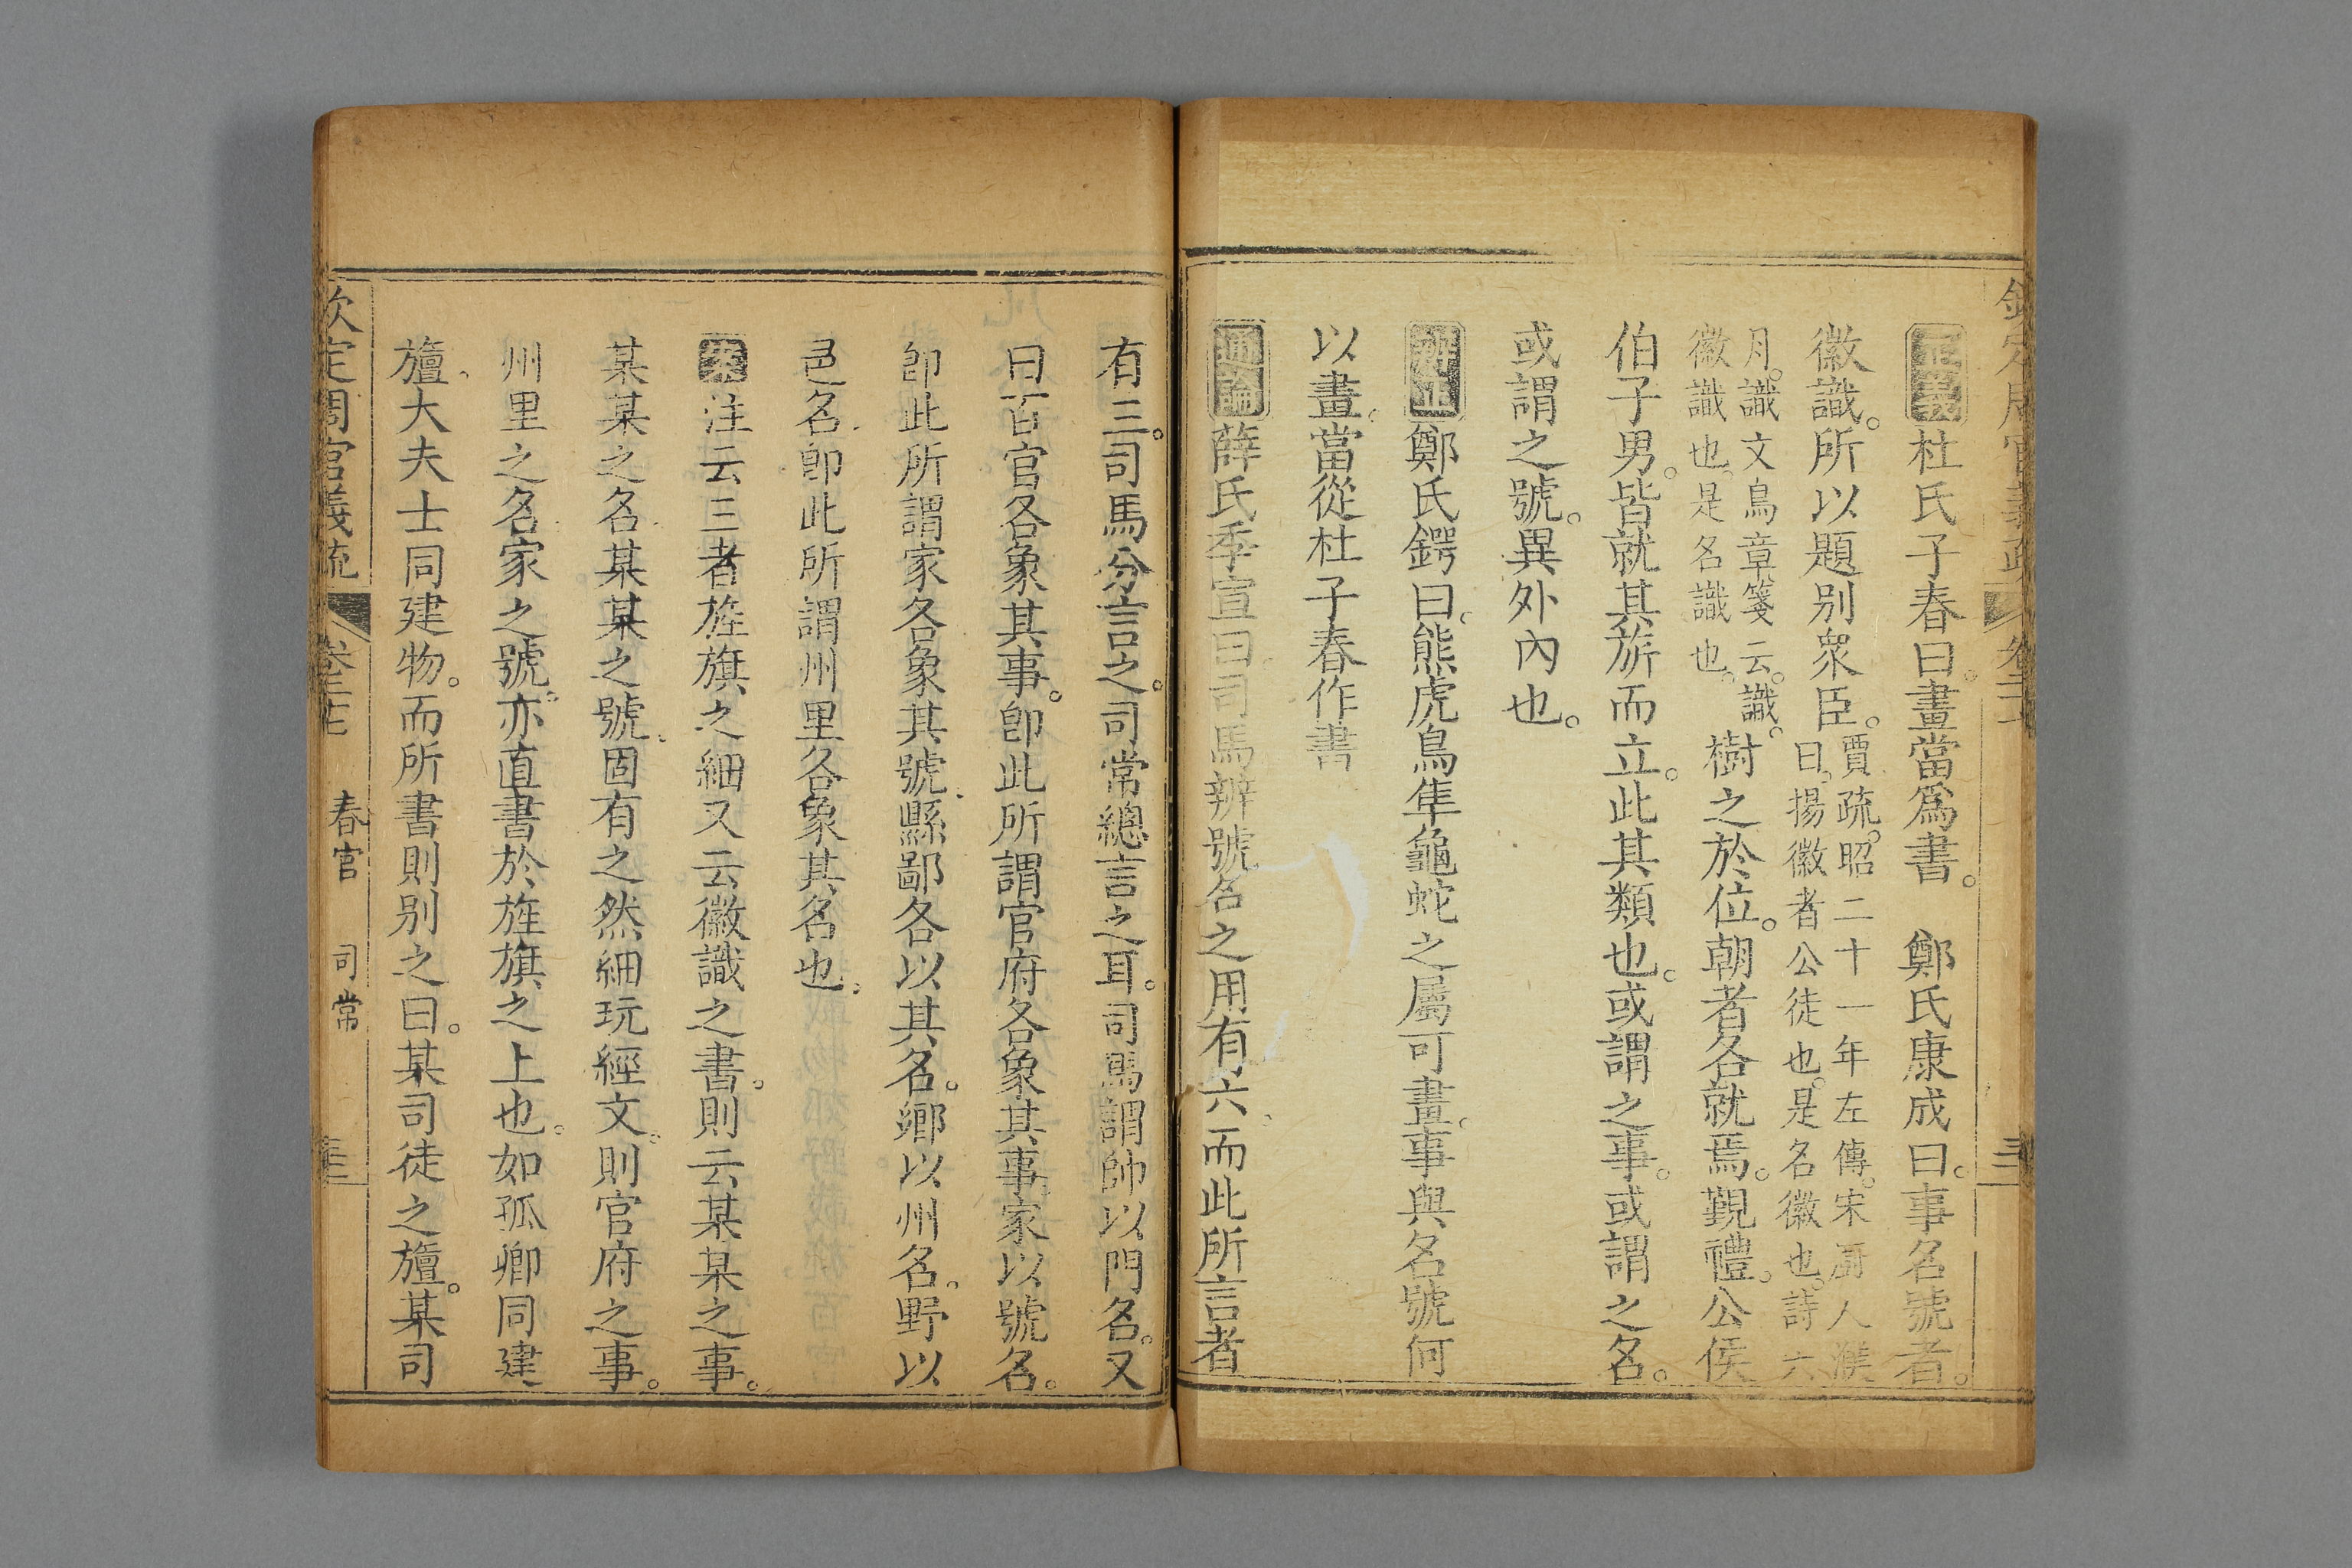 正義杜氏子春曰。畫當爲書。 鄭氏康成曰。事名號者。
徽識。所以題別衆臣。
賈疏。昭二十一年左傳。宋厨人濮
曰。揚徽者公徒也。是名徽也。詩六
月。識文鳥章箋云。識。
徽識也。是名識也。
樹之於位。朝者各就焉。覲禮。公侯
伯子男。皆就其旂而立。此其類也。或謂之事。或謂之名。
或謂之號。異外內也。
辨正鄭氏鍔曰。熊虎鳥隼龜蛇之屬可畫。事與名號何
以畫。當從杜子春作書
通論薛氏季宣曰。司馬辨號名之用有六。而此所言者
有三。司馬分言之。司常總言之耳。司馬謂帥以門名。又
曰百官各象其事。卽此所謂官府各象其事。家以號名。
卽此所謂家各象其號。縣鄙各以其名。鄉以州名。野以
邑名。卽此所謂州里各象其名也。
案注云三者旌旗之細又云徽識之書。則云某某之事。
某某之名。某某之號。固有之然細玩經文。則官府之事。
州里之名。家之號。亦直書於旌旗之上也。如孤卿同建
旜。大夫士同建物。而所書則別之曰。某司徒之旜。某司
欽定周官義疏 卷二十七 春官 司常